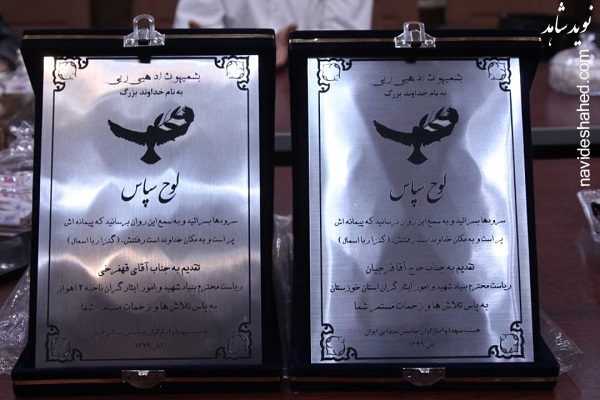 نوید شاهد
navideshahed.com
به نام خداوند بزرگ
لوح سپاس
سرودها بسرائید و به سمع این روان برسانید که پیمانه اش
پر است و به مکان خداوند است رفتنش. (گنزا ربا اسمال)
تقدیم به جناب آقای قهفرخی
ریاست محترم بنیاد شهید و امور ایثارگران ناحیه ۲ اهواز
به پاس تلاش ها و زحمات مستمر شما
به نام خداوند بزرگ
لوح سپاس
سرودها بسرائید و به سمع این روان برسانید که پیمانه اش
پر است و به مکان خداوند است رفتنش. (گنزا ربا اسمال)
تقدیم به جناب حاج آقا فرجیان
ریاست محترم بنیاد شهید و امور ایثارگران استان خوزستان
به پاس تلاش ها و زحمات مستمر شما
ایران